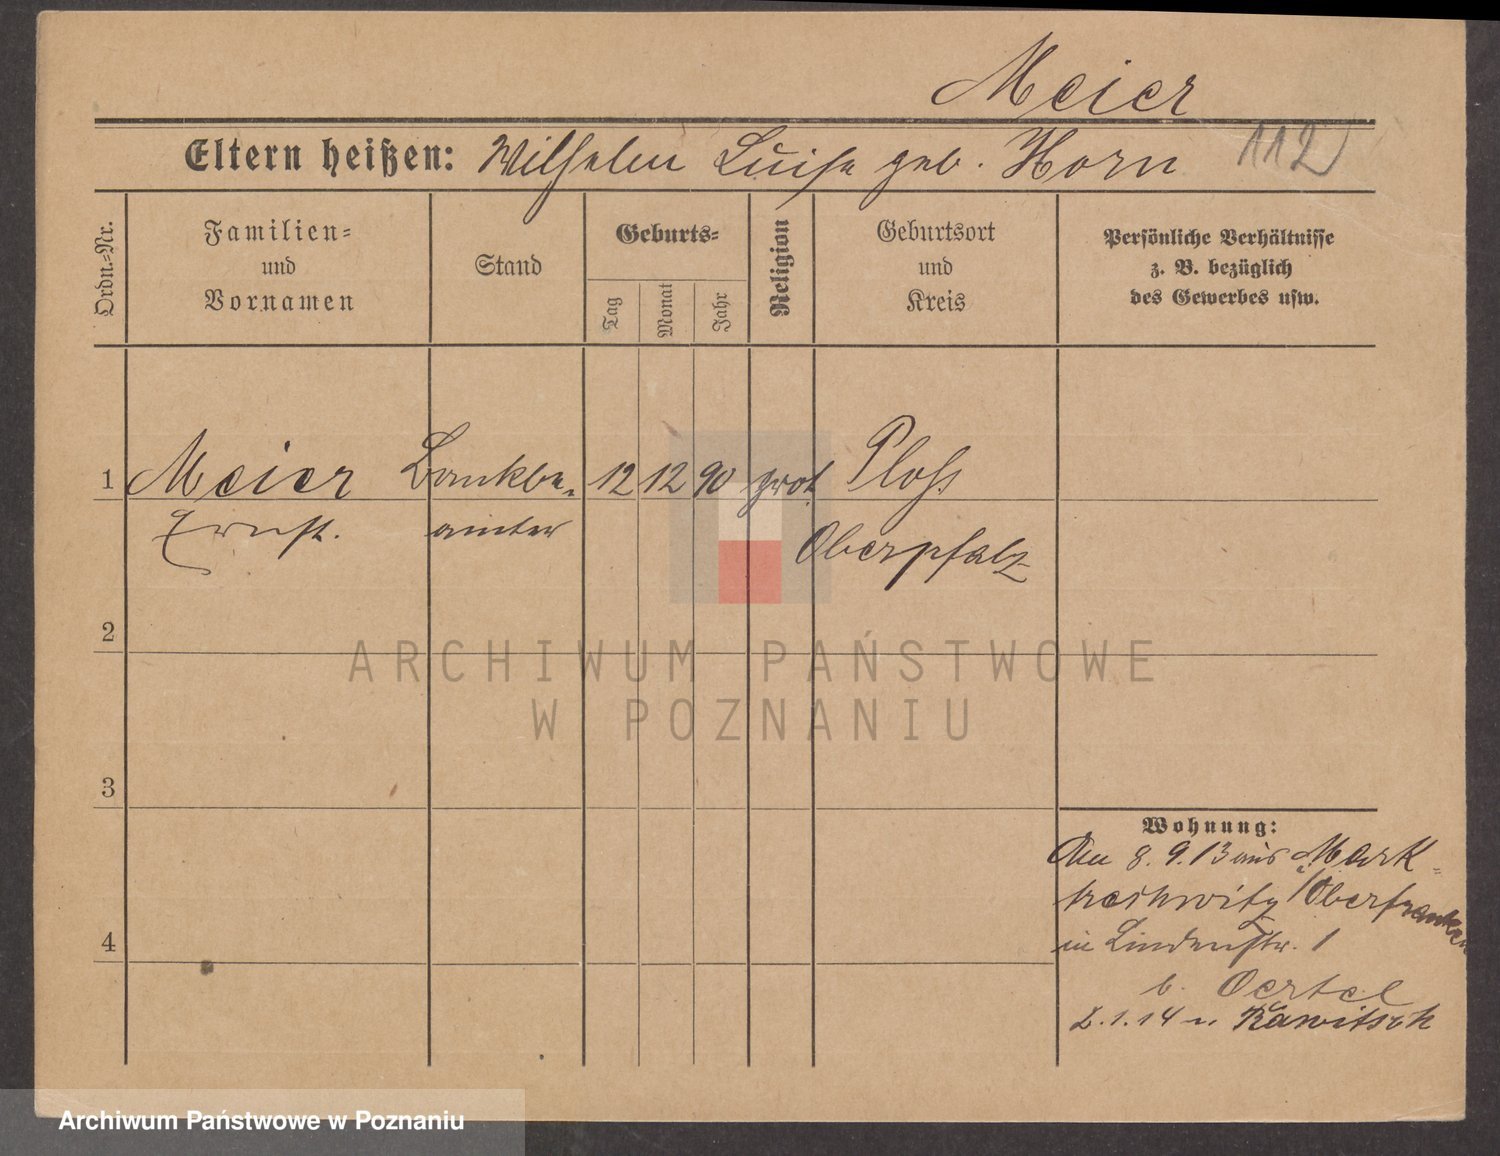 Meier
Eltern heißen: Wilhelm Luise geb. Horn 112
Ordn.=Nr.
Familien=
und
Vornamen
Stand
Geburts=
Tag
Monat
Jahr
Religion
Geburtsort
und
Kreis
Persönliche Verhältnisse
z. B. bezüglich
des Gewerbes usw.
1 Meier Bankbe= 12 12 90 prot. Ploß
Ernst. amter Oberpfalz
2
ARCHIWUM PAŃSTWOWE
W POZNANIU
3
Wohnung:
Am 8. 9. 13 aus Mark=
tredwitz i/Oberfranken
4
in Lindenstr. 1
b. Oertel
2. 1. 14 n. Rawitsch
Archiwum Państwowe w Poznaniu